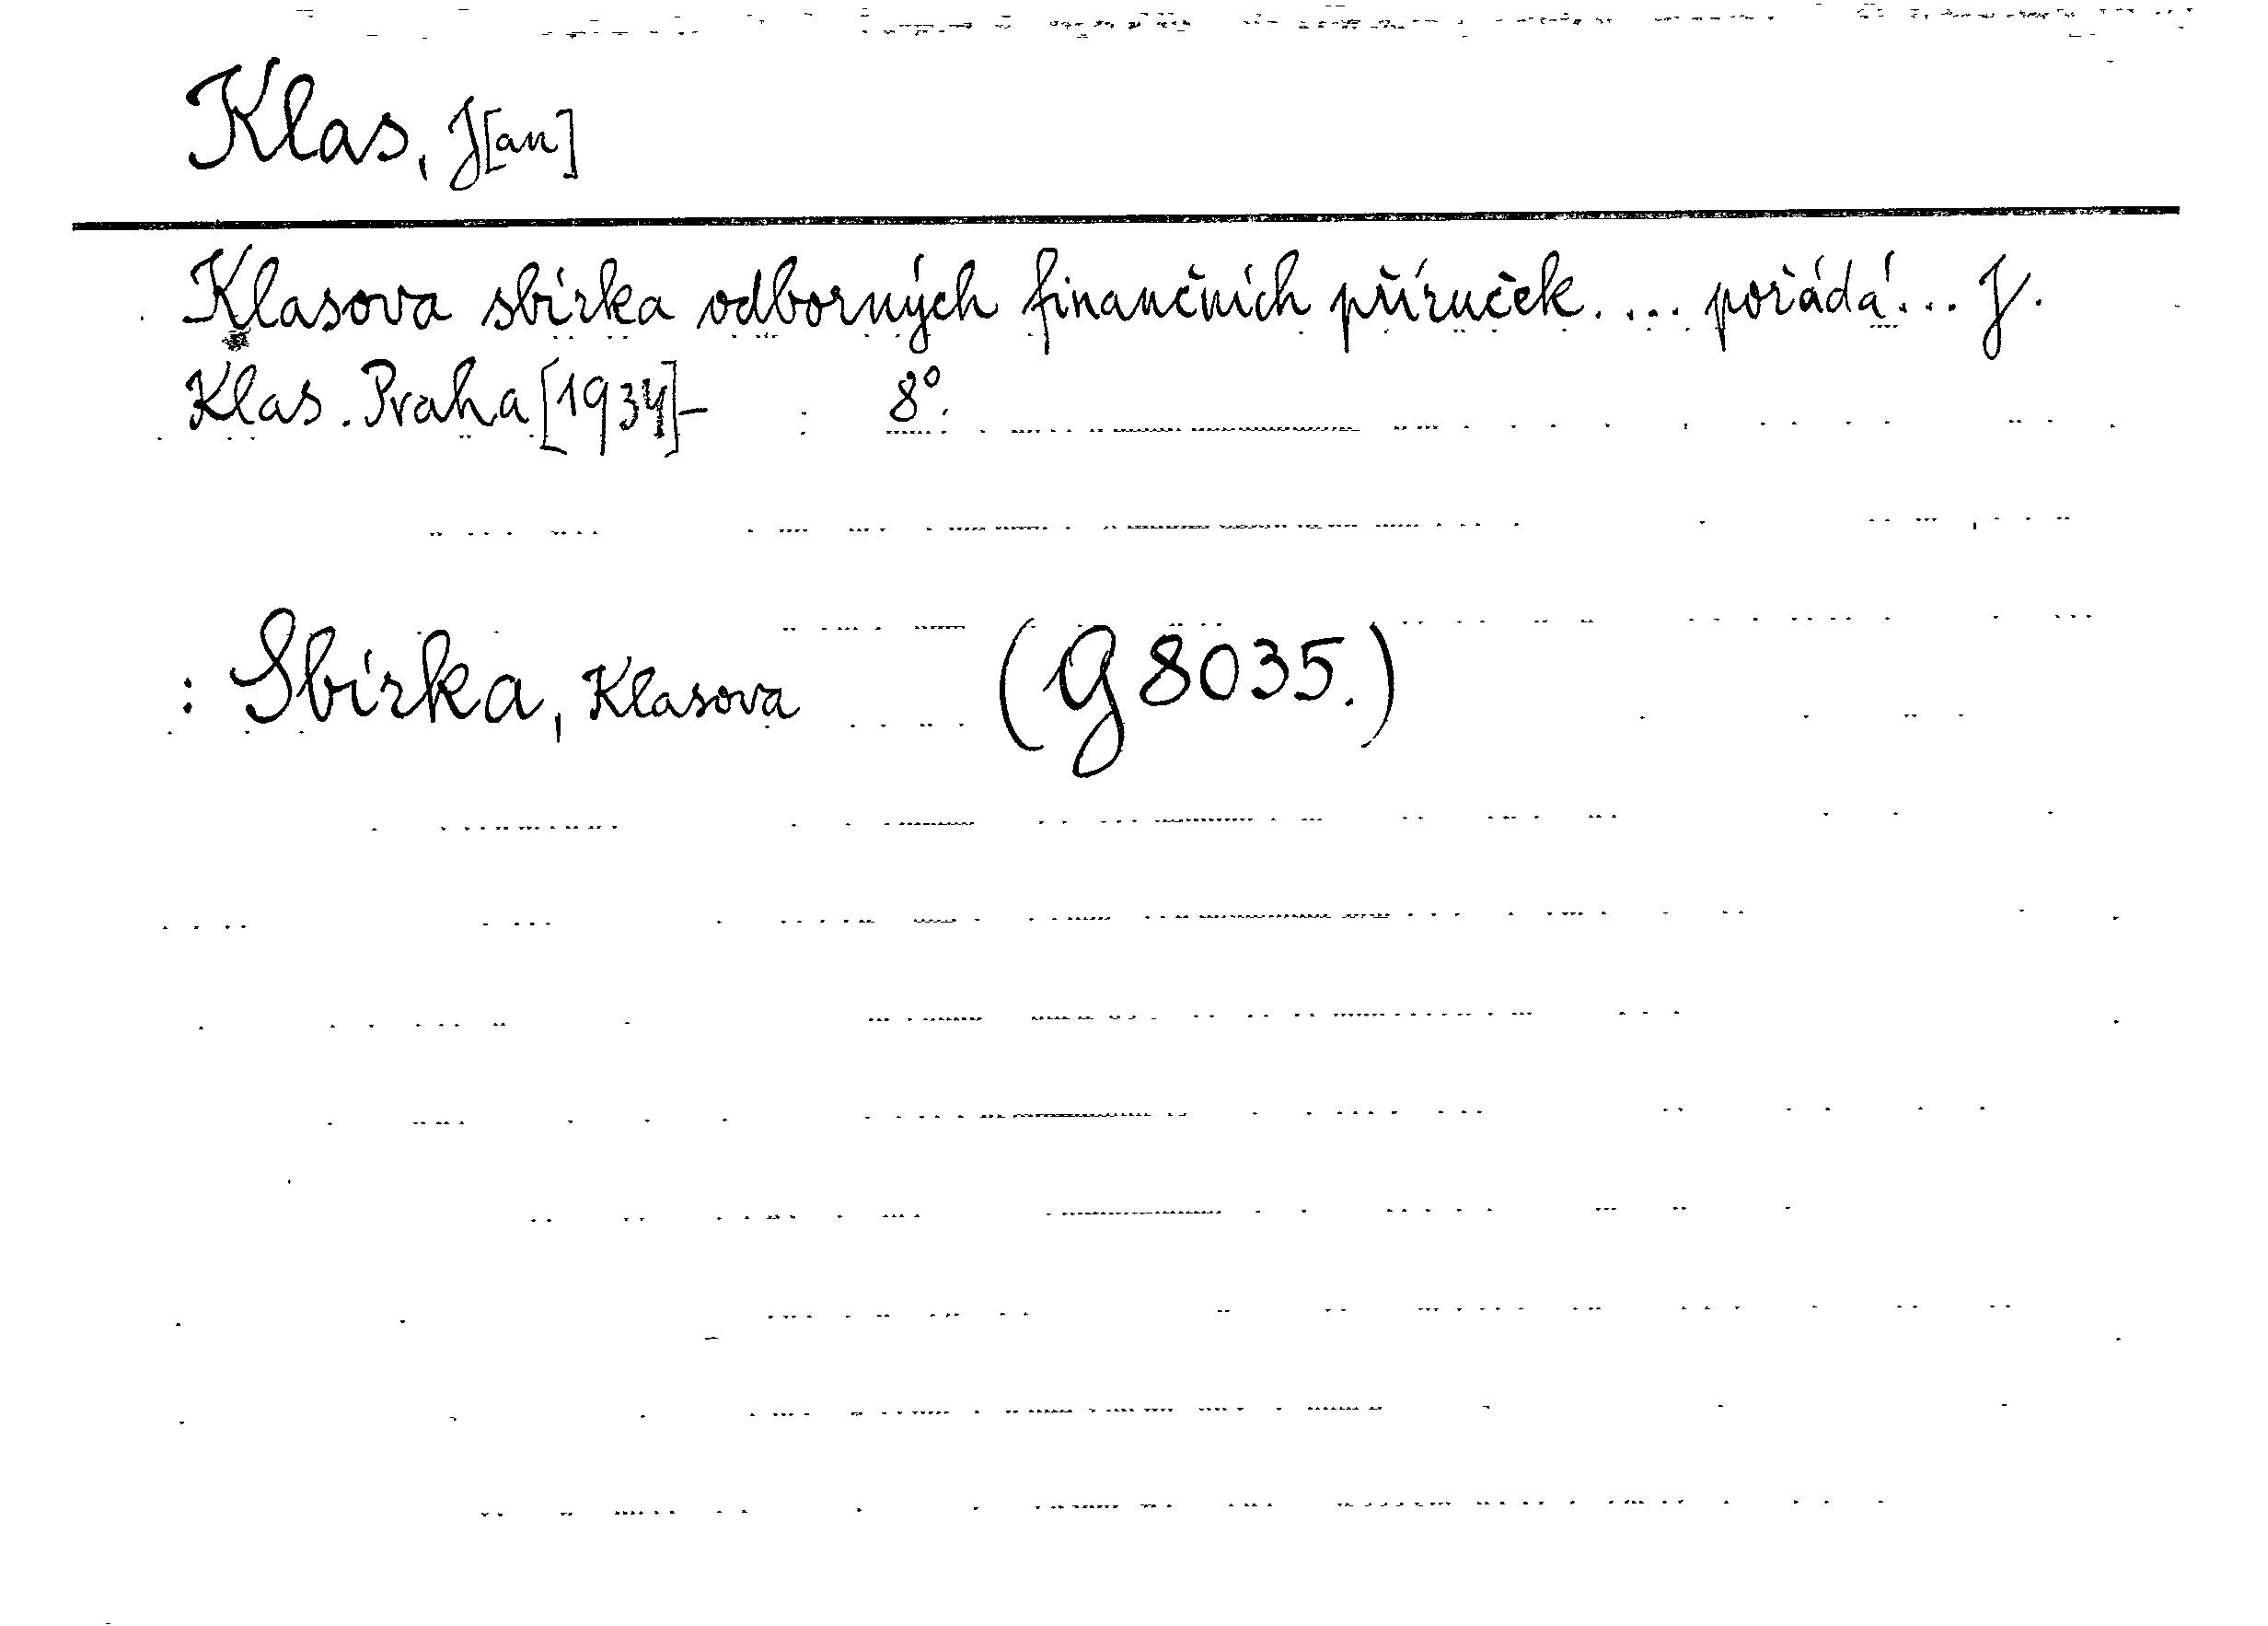 Klas, J[an]
Klasova sbírka odborných finančních příruček.... pořádá... J.
Klas. Praha [1934]- 8°.
: Sbírka, Klasova (G 8035.)